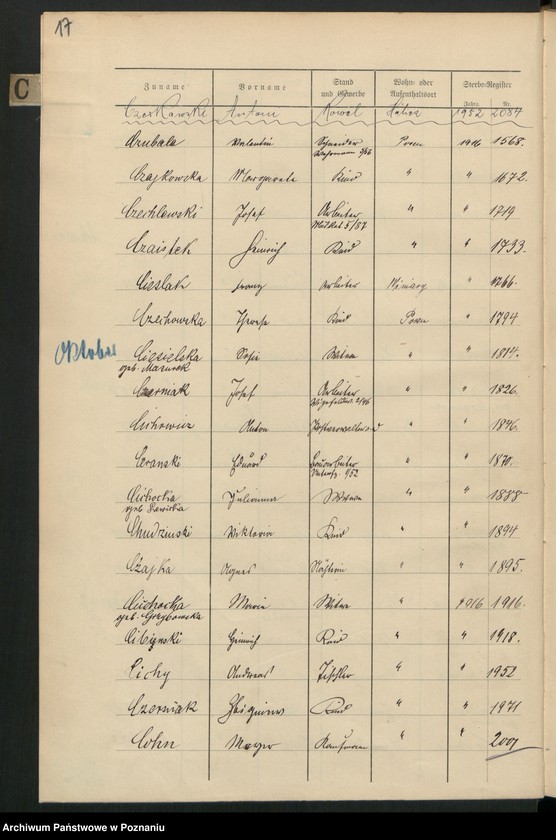 17
C
Zuname Vorname Stand und Gewerbe Wohn- oder Aufenthaltsort Sterbe-Register
Jahr. Nr.
Anton 1952 2087
Czubala Valentin Schneider Posen 1916 1568.
Czajkowska Margarete Kind " " 1672.
Czechlewski Josef Arbeiter " " 1719
Musket 5/87
Heinrich Kind " " 1733.
Cieslak Franz Arbeiter Winiary " 1266.
Czechowska Therese Kind Posen " 1794
Oktober
Ciesielska Sofie Witwe " " 1814.
geb. Mazurek
Czerniak Josef Arbeiter " " 1826.
Cichowicz Anton " " 1846.
Ceranski Eduard " " 1870.
Cichocka Julianna Witwe " " 1888
geb. Sawicka
Chudzinski Viktoria Kind " " 1894
Czajka Agnes Näherin " " 1895.
Cichocka Maria Witwe " 1916 1916.
geb. Grzybowska
Cibinski Heinrich Kind " " 1918.
Cichy Andreas Tischler " " 1952
Czerniak Zbigniew Kind " " 1971
Cohn Meyer Kaufmann " " 2001
Archiwum Państwowe w Poznaniu